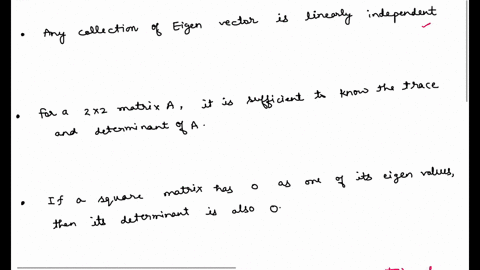 • Any collection of Eigen vector is linearly independent
• For a 2x2 matrix A, it is sufficient to know the trace
and determinant of A.
• If a square matrix has 0 as one of its eigen values,
then its determinant is also 0.